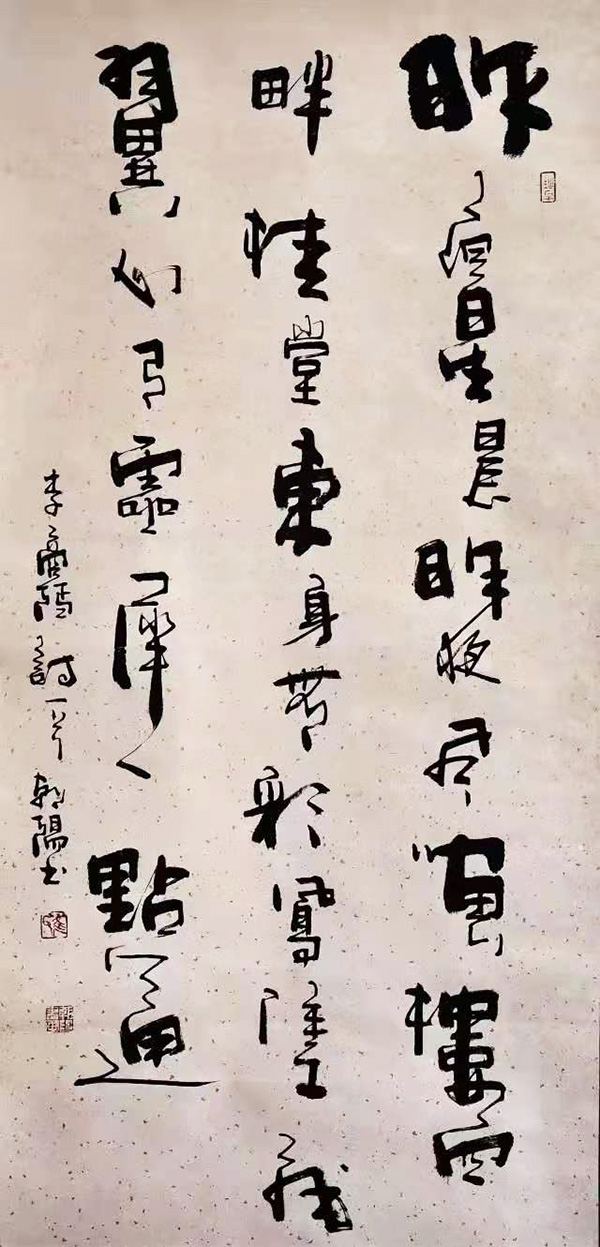 昨夜星辰昨夜風畫樓西
畔桂堂東身無彩鳳雙飛
翼心有靈犀一點通
李商隱詩一首 朝陽書